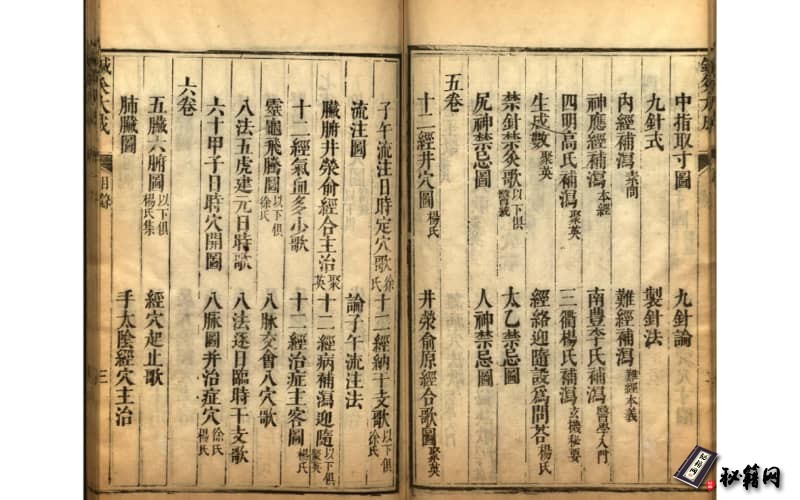 中指取寸圖　九針論
九針式　製針法
內經補瀉素問　難經補瀉難經本義
神應經補瀉本經　南豐李氏補瀉醫學入門
四明高氏補瀉聚英　三衢楊氏補瀉玄機秘要
生成數聚英　經絡迎隨設爲問答楊氏
禁針禁灸歌以下俱醫統　太乙禁忌圖
尻神禁忌圖　人神禁忌圖
五卷
十二經井穴圖楊氏　井滎俞原經合歌圖聚英
子午流注日時定穴歌徐氏　十二經納干支歌以下俱徐氏
流注圖　論子午流注法
臟腑井滎俞經合主治聚英　十二經病補瀉迎隨以下俱聚英
十二經氣血多少歌　十二經治症主客圖楊氏
靈龜飛騰圖以下俱徐氏　八脉交會八穴歌
八法五虎建元日時歌　八法逐日臨時干支歌
六十甲子日時穴開圖　八脉圖并治症穴徐氏楊氏
六卷
五臟六腑圖以下俱楊氏集　經穴起止歌
肺臟圖　手太陰經穴主治
鍼灸大成　目錄　三
秘籍网